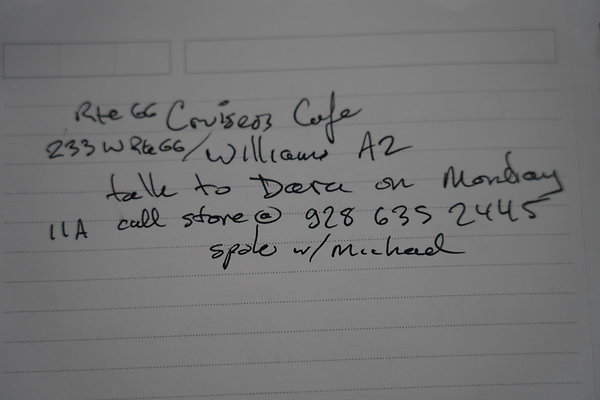 Rte 66 Cruisers Cafe
233 W Rte 66/Williams AZ
talk to Dara on Monday
11A call store @ 928 635 2445
spoke w/ Michael